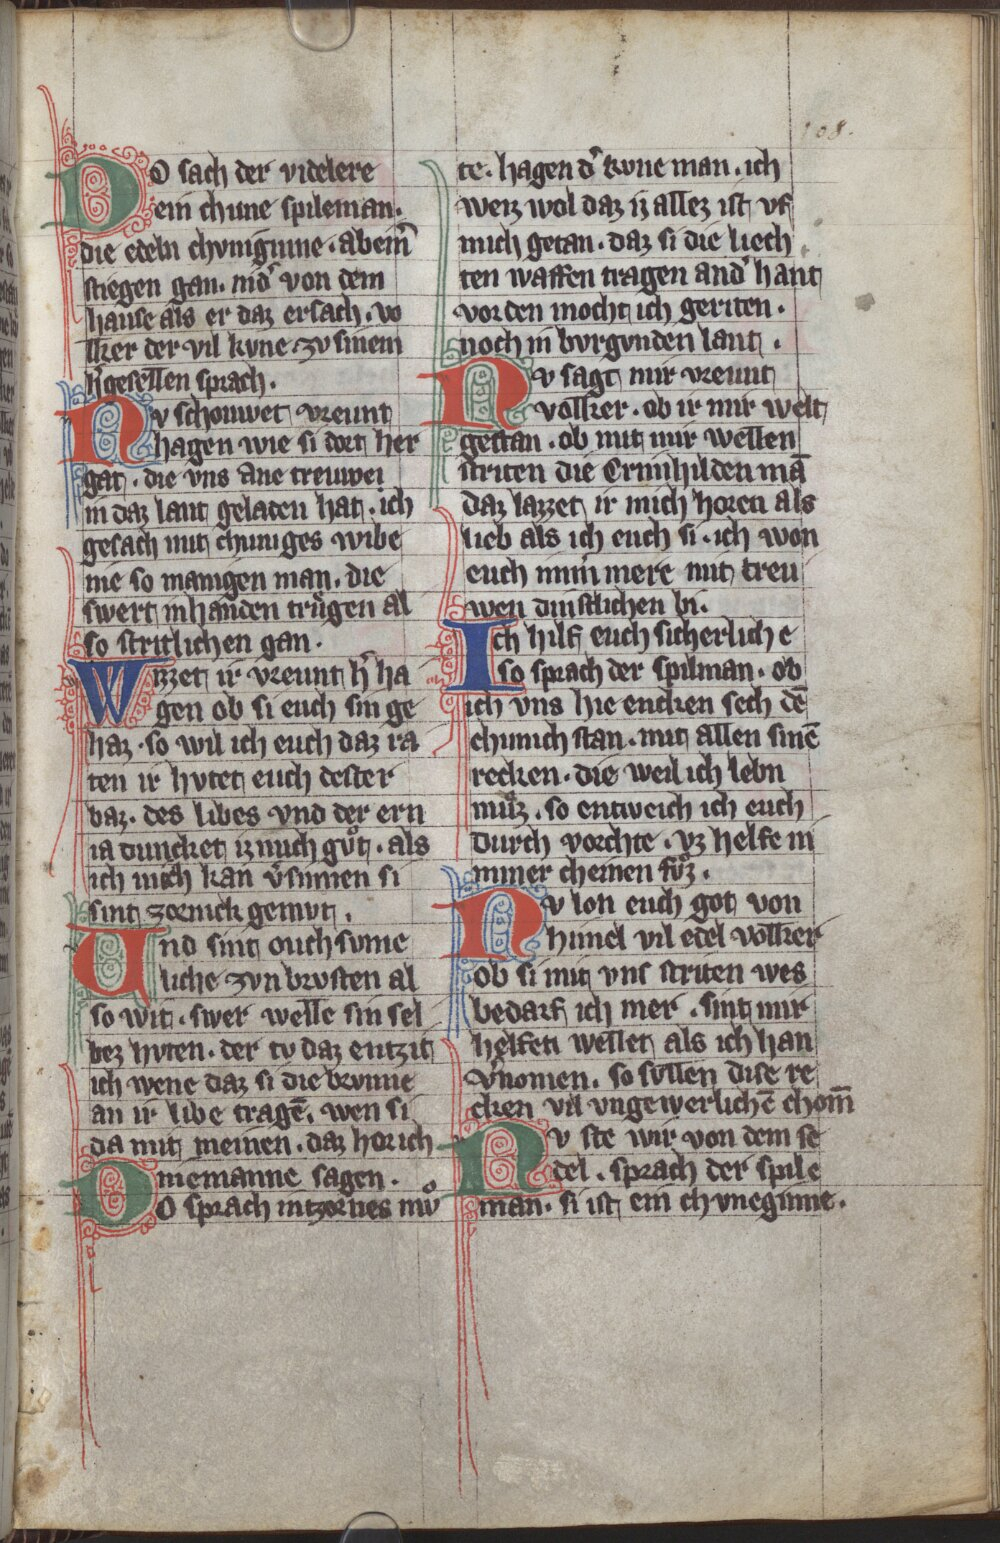 108.
Do sach der videlere
ein chune spileman.
die edeln chvniginne. abein᷑
stiegen gan. nid᷑ von dem
hause als er daz ersach. vo
lker der vil kvne zv sinem
h᷑gesellen sprach.
Nv schouwet vreunt
hagen wie si dort her
gat. die vns ane treuwei
in daz lant geladen hat. ich
gesach mit chuniges wibe
nie so manigen man. die
swert inhanden trůgen al
so stritlichen gan.
Wizzet ir vreunt h᷑ ha
gen ob si euch sin ge
haz. so wil ich euch daz ra
ten ir hvtet euch dester
baz. des libes vnd der ern
ia duncket iz mich gůt. als
ich mich kan v᷑sinnen si
sint zornick gemvt.
Vnd sint ouch svme
liche zvn brvsten al
so wit. swer welle sin sel
bez hvten. der tv daz entzit
ich wene daz si die brvnne
an ir libe tragē. wen si
da mit meinen. daz hor ich
niemanne sagen.
Do sprach intzornes mů
te. hagen d᷑ kvne man. ich
weiz wol daz iz allez ist vf
mich getan. daz si die liech
ten waffen tragen and᷑ hant
vor den mocht ich geriten.
noch in bvrgvnden lant.
Nv sagt mir vreunt
volker. ob ir mir welt
gestan. ob mit mir wellen
striten die Crimhilden mā
daz lazzet ir mich horen als
lieb als ich euch si. ich won
euch nim᷑ mere mit treu
wen dinstlichen bi.
Ich hilf euch sicherliche
so sprach der spilman. ob
ich vns hie encken sech dē
chunich stan. mit allen sinē
recken. die weil ich lebn
můz. so entweich ich euch
durch vorchte. vz helfe ni
mmer cheinen fůz.
Nv lon euch got von
himel vil edel volker
ob si mit vns striten wes
bedarf ich mer. sint mir
helfen wellet als ich han
v᷑nomen. so svllen dise re
cken vil vngewerlichē chom̄
Nv ste wir von dem se
del. sprach der spile
man. si ist ein chvneginne.